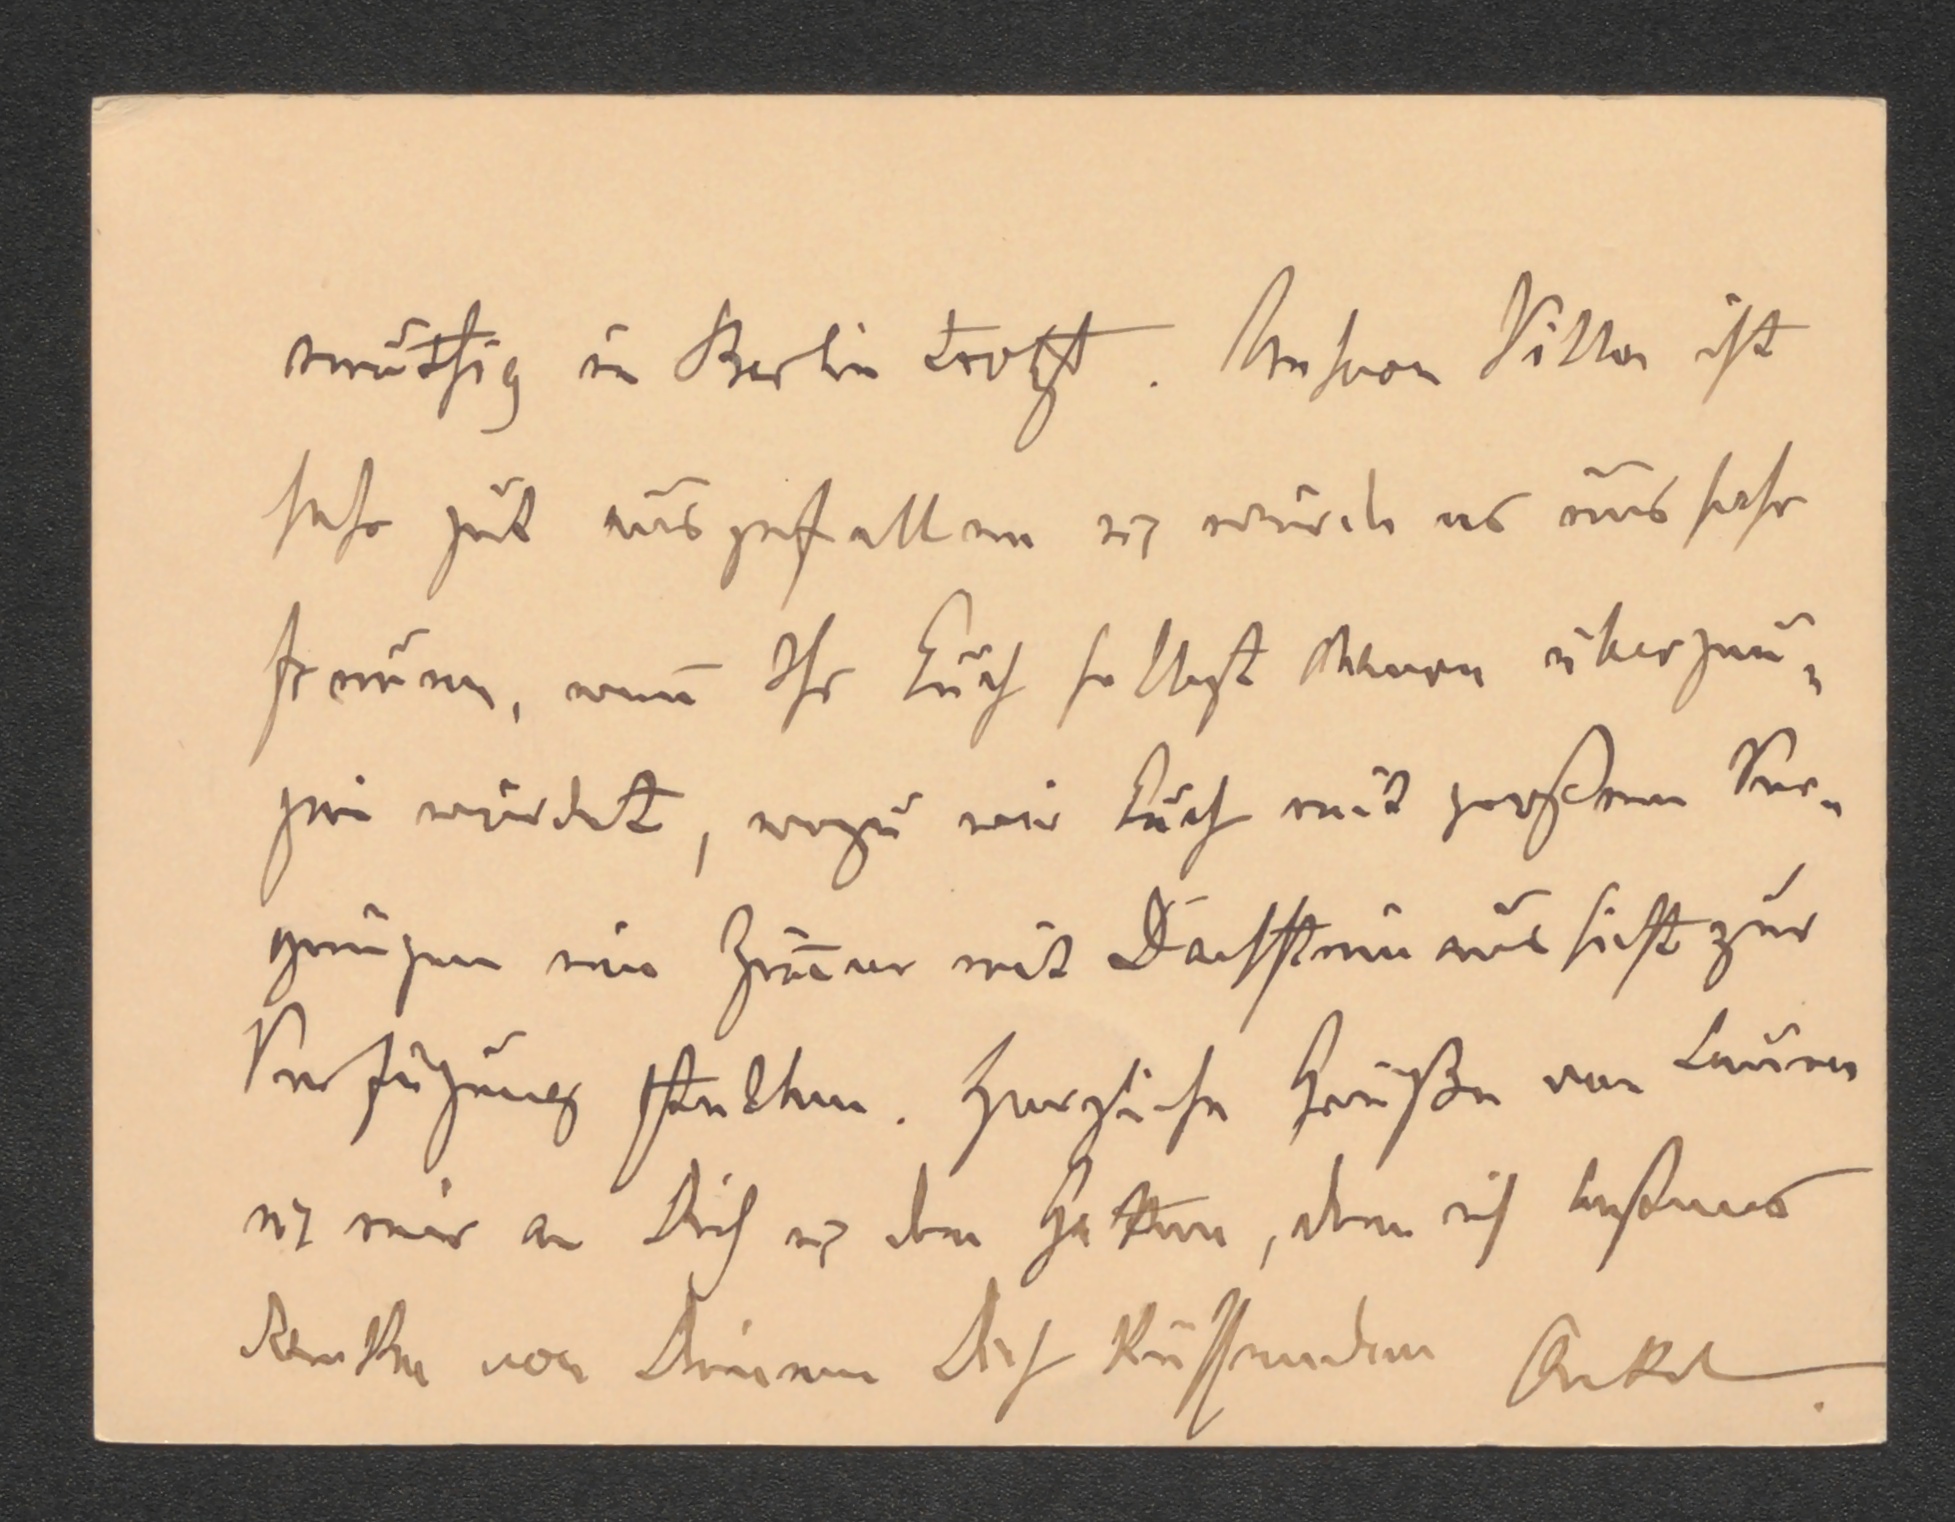 muthig in Berlin trotzt. Unsere Villa ist
sehr gut ausgefallen u. würde es uns sehr
freuen, wenn Ihr Euch selbst davon überzeu-
gen würdet, wozu wir Euch mit großem Ver-
gnügen ein Zimmer mit Dachsteinaussicht zur
Verfügung stellen. Herzliche Grüße von Laura
u. mir an Dich u. den Gatten, dem ich bestens
danke von Deinem Dich küssenden Onkel.